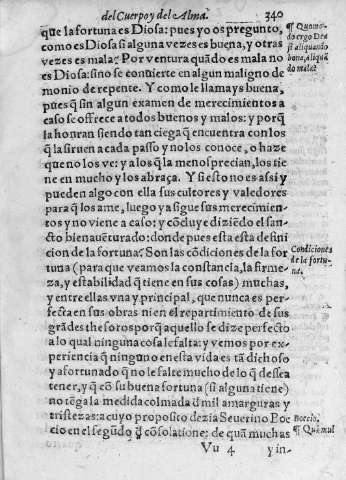 del Cuerpo y del Alma. 340
que la fortuna es Diosa: pues yo os pregunto,
como es Diosa si alguna vezes es buena, y otras
vezes es mala? Por ventura quãdo es mala no
es Diosa: sino se conuierte en algun maligno de
monio de repente. Y como le llamays buena,
pues q̃ sin algun examen de merecimientos a
caso se offrece a todos buenos y malos: y porq̃
la honran siendo tan ciega q̃ encuentra con los
q̃ la siruen a cada passo y no los conoce, o haze
que no los ve: y a los q̃ la menosprecian, los tie
ne en mucho y los abraça. Y si esto no es assi y
pueden algo con ella sus cultores y valedores
para q̃ los ame, luego ya sigue sus merecimien-
tos y no viene a caso; y cõcluye diziẽdo el san-
cto bienauẽturado: donde pues esta esta defini
cion de la fortuna? Son las cõdiciones de la for
tuna (para que veamos la constancia, la firme-
za, y estabilidad q̃ tiene en sus cosas) muchas,
y entre ellas vna y principal, que nunca es per-
fecta en sus obras ni en el repartimiento de sus
grãdes thesoros porq̃ aquello se dize perfecto
a lo qual ninguna cosa le falta: y vemos por ex-
periencia q̃ ninguno en esta vida es tã dichoso
y afortunado q̃ no le falte mucho de lo q̃ dessea
tener, y q̃ cõ su buena fortuna (si alguna tiene)
no tẽga la medida colmada d̃ mil amarguras y
tristezas: a cuyo proposito dezia Seuerino Boe
cio en el segũdo d̃ cõsolatione: de quã muchas
Vu 4 y in-
¶ Quomo-
do ergo Dea
si aliquando
bona, aliquã
do mala?
Condiciones
de la fortu-
na.
Boecio.
¶ Quã mul